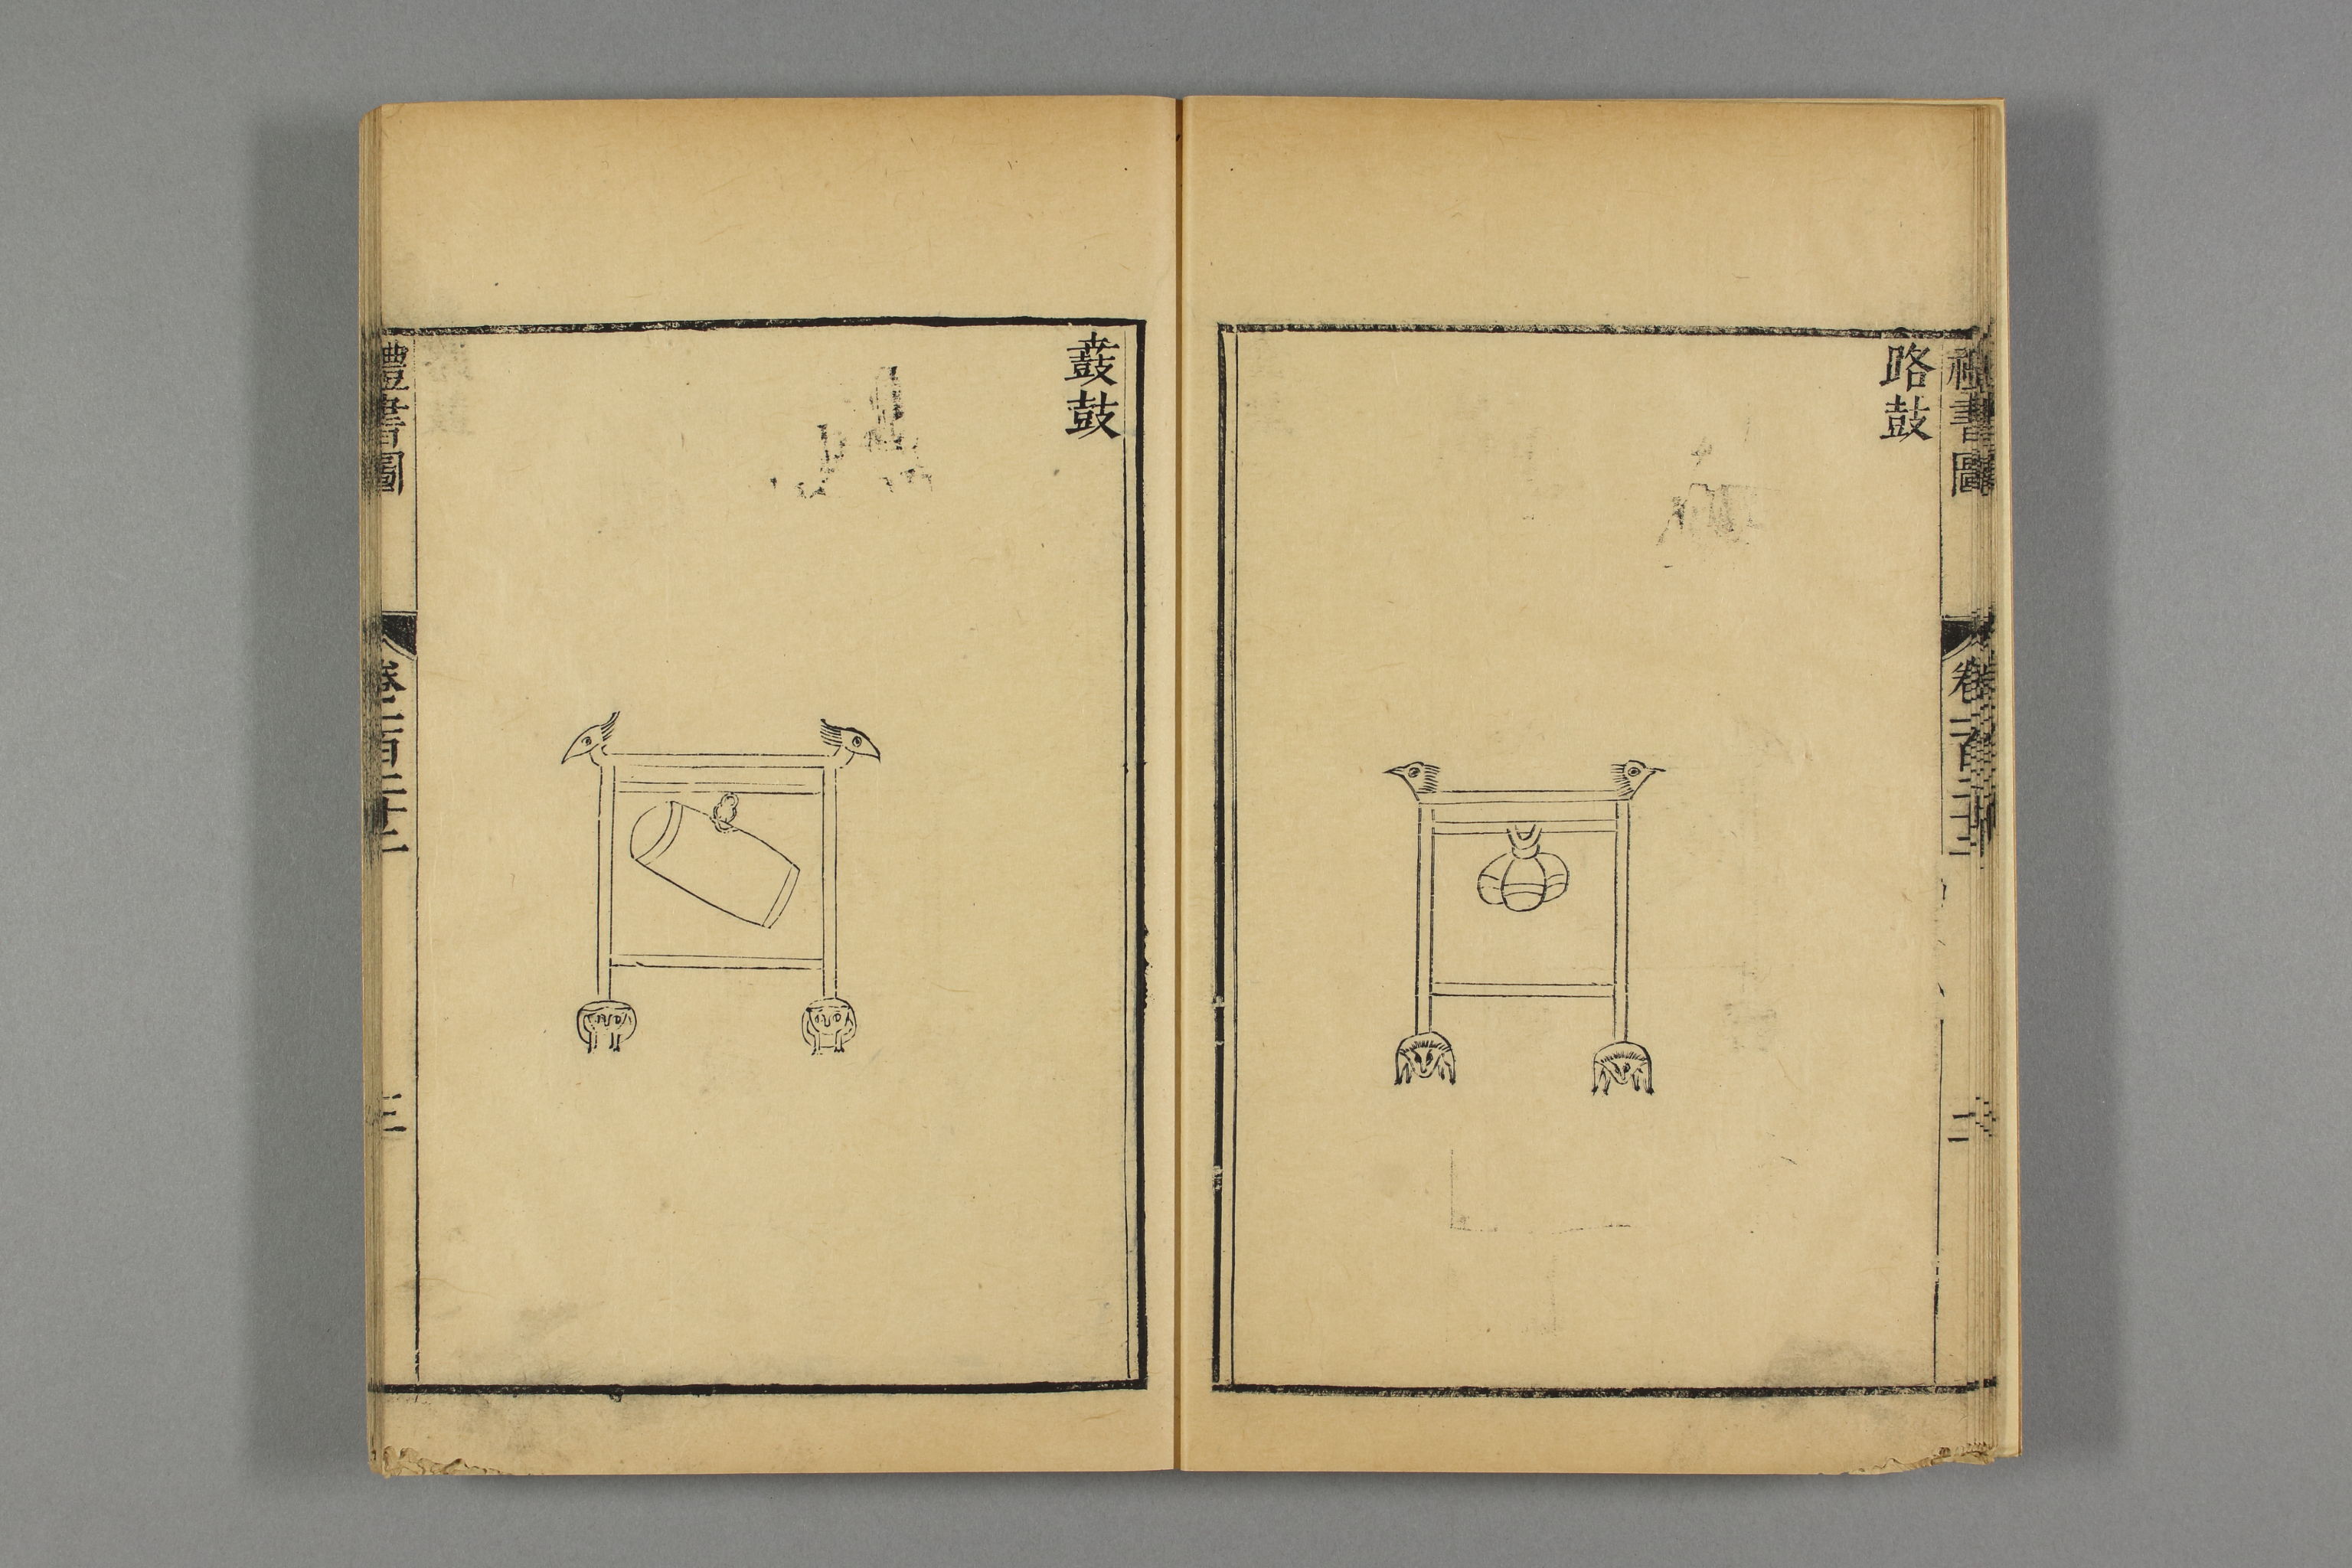 禮書圖 卷一百二十二 二
路鼓
鼖鼓
禮書圖 卷一百二十二 三